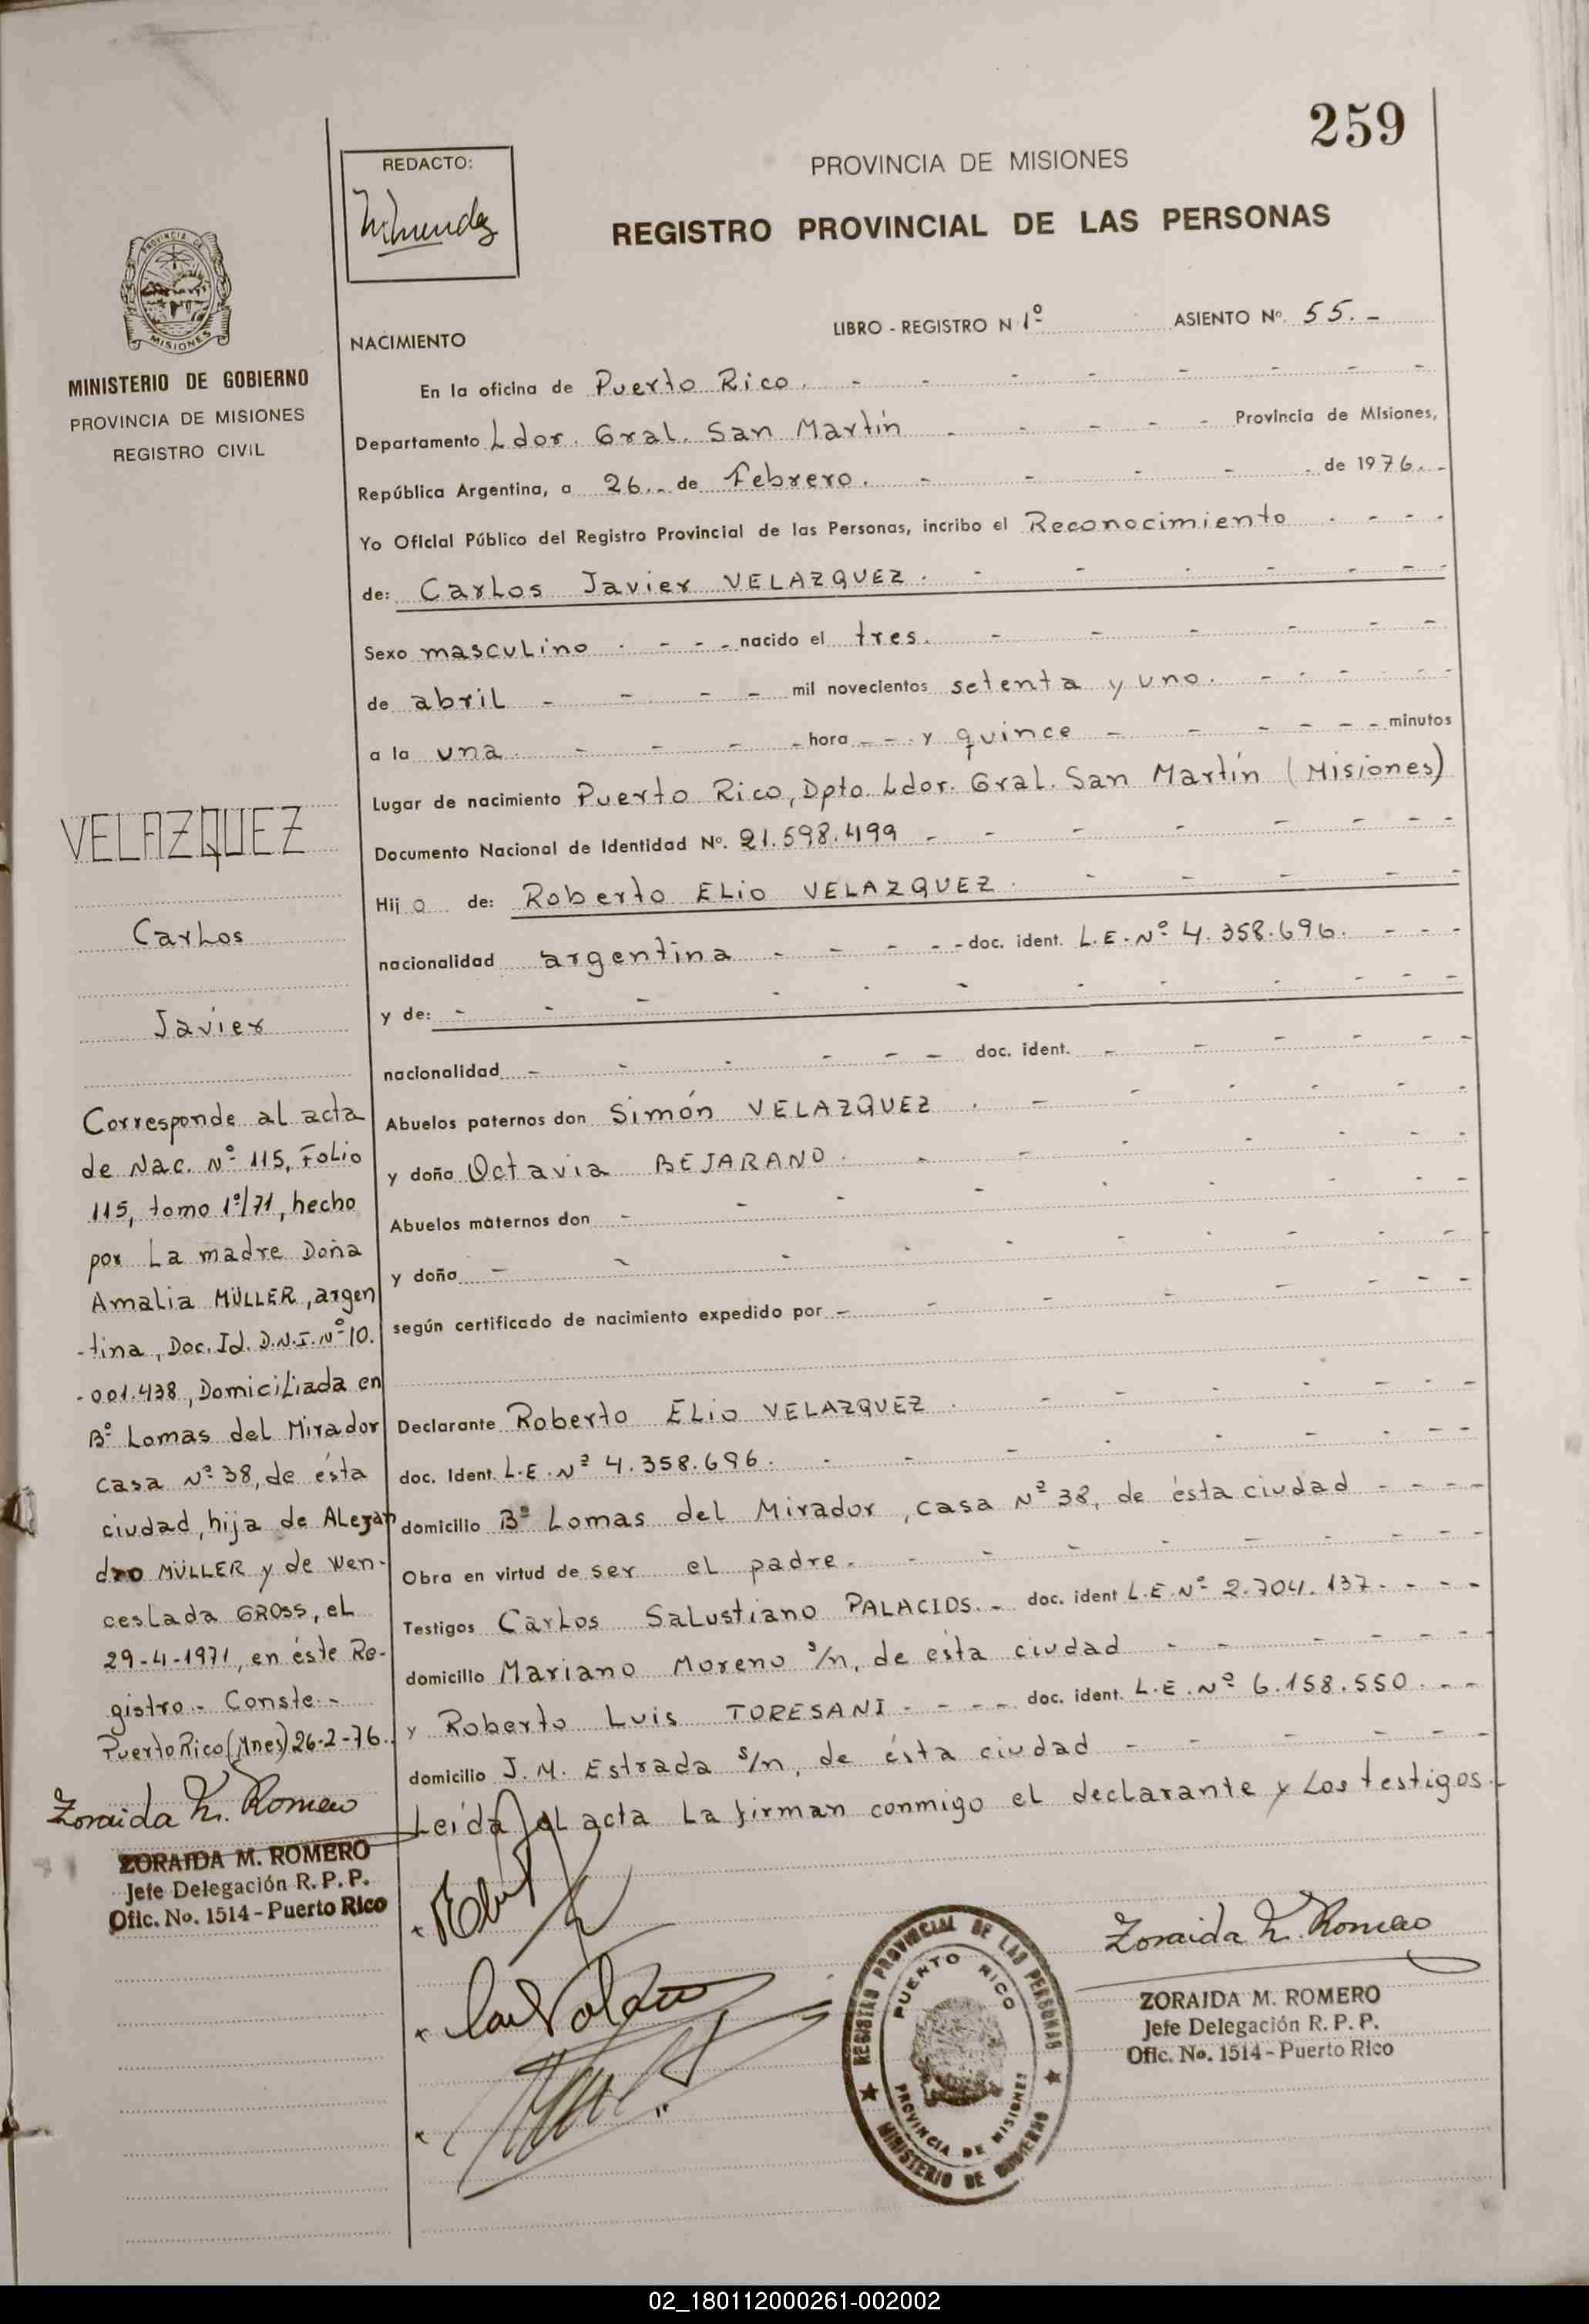 259
REDACTO:
PROVINCIA DE MISIONES
REGISTRO PROVINCIAL DE LAS PERSONAS
PROVINCIA DE
MISIONES
MINISTERIO DE GOBIERNO
PROVINCIA DE MISIONES
REGISTRO CIVIL
NACIMIENTO
LIBRO - REGISTRO N 1º ASIENTO Nº. 55. -
En la oficina de Puerto Rico. - - - - - - - -
Departamento Ldor. Gral. San Martín - - - - - Provincia de Misiones,
República Argentina, a 26.- de Febrero. - - - - - de 1976. -
Yo Oficial Público del Registro Provincial de las Personas, incribo el Reconocimiento - - - -
de: Carlos Javier VELAZQUEZ. - - - - - - -
Sexo masculino - - - - nacido el tres. - - - - - -
de abril - - - - mil novecientos setenta y uno. - - - - - -
a la una. - - - - hora - - - y quince - - - - - - minutos
Lugar de nacimiento Puerto Rico, Dpto. Ldor. Gral. San Martín (Misiones)
Documento Nacional de Identidad Nº. 21.598.499 - - - - - - - -
Hijo de: Roberto ELio VELAZQUEZ. - - - - - -
nacionalidad argentina - - - - - doc. ident. L.E. Nº 4.358.696. - - -
y de: - - - - - - - - - - -
nacionalidad - - - - - - doc. ident. - - - - - -
Abuelos paternos don Simón VELAZQUEZ . - - - - - -
y doña Octavia BEJARANO. - - - - - - -
Abuelos maternos don - - - - - - - - -
y doña - - - - - - - - - -
según certificado de nacimiento expedido por - - - - - - - -
Declarante Roberto ELio VELAZQUEZ . - - - - - - -
doc. Ident. L.E. Nº 4.358.696. - - - - - - - -
domicilio Bº Lomas del Mirador, casa Nº 38, de ésta ciudad - - - -
Obra en virtud de ser el padre. - - - - - - - - -
Testigos Carlos Salustiano PALACIOS. - doc. ident L.E. Nº 2.704.137. - - -
domicilio Mariano Moreno s/n, de esta ciudad - - - - - - -
y Roberto Luis TORESANI - - - - doc. ident. L.E. Nº 6.158.550. - -
domicilio J. M. Estrada s/n, de ésta ciudad - - - - - -
Leída el acta La firman conmigo el declarante y Los testigos. -
VELAZQUEZ
Carlos
Javier
Corresponde al acta
de Nac. Nº 115, Folio
115, tomo 1º/71, hecho
por La madre Doña
Amalia MÜLLER, argen
-tina, Doc. Id. D.N.I. Nº 10.
-001.438, Domiciliada en
Bº Lomas del Mirador
casa Nº 38, de ésta
ciudad, hija de Alejan
dro MÜLLER y de Wen-
ceslada GROSS, el
29-4-1971, en éste Re-
gistro.- Conste.-
Puerto Rico (Mnes) 26-2-76.
Zoraida M. Romero
ZORAIDA M. ROMERO
Jefe Delegación R. P. P.
Ofic. No. 1514 - Puerto Rico
REGISTRO PROVINCIAL DE LAS PERSONAS
PUERTO RICO
PROVINCIA DE MISIONES
MINISTERIO DE GOBIERNO
Zoraida M. Romero
ZORAIDA M. ROMERO
Jefe Delegación R. P. P.
Ofic. No. 1514 - Puerto Rico
02_180112000261-002002